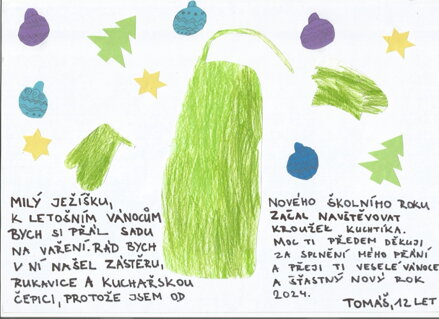 MILÝ JEŽÍŠKU,
K LETOŠNÍM VÁNOCŮM
BYCH SI PŘÁL SADU
NA VAŘENÍ. RÁD BYCH
V NÍ NAŠEL ZÁSTĚRU,
RUKAVICE A KUCHAŘSKOU
ČEPICI, PROTOŽE JSEM OD
NOVÉHO ŠKOLNÍHO ROKU
ZAČAL NAVŠTĚVOVAT
KROUŽEK KUCHTÍKA.
MOC TI PŘEDEM DĚKUJI
ZA SPLNĚNÍ MÉHO PŘÁNÍ
A PŘEJI TI VESELÉ VÁNOCE
A ŠŤASTNÝ NOVÝ ROK
2024.
TOMÁŠ, 12 LET